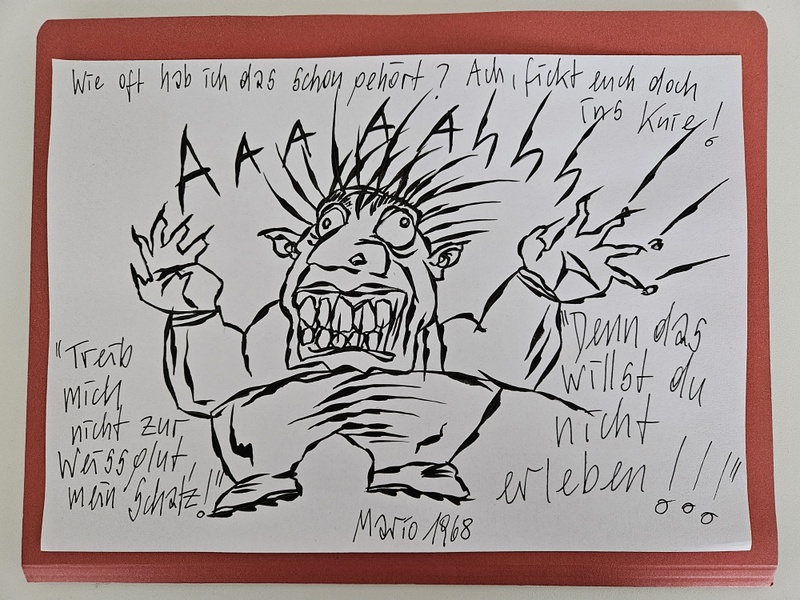 Wie oft hab ich das schon gehört? Ach, fickt euch doch
ins Knie!
AAAAAhhhh
"Treib
mich
nicht zur
Weissglut,
mein Schatz!"
"Denn das
willst du
nicht
erleben!!!"
Mario 1968